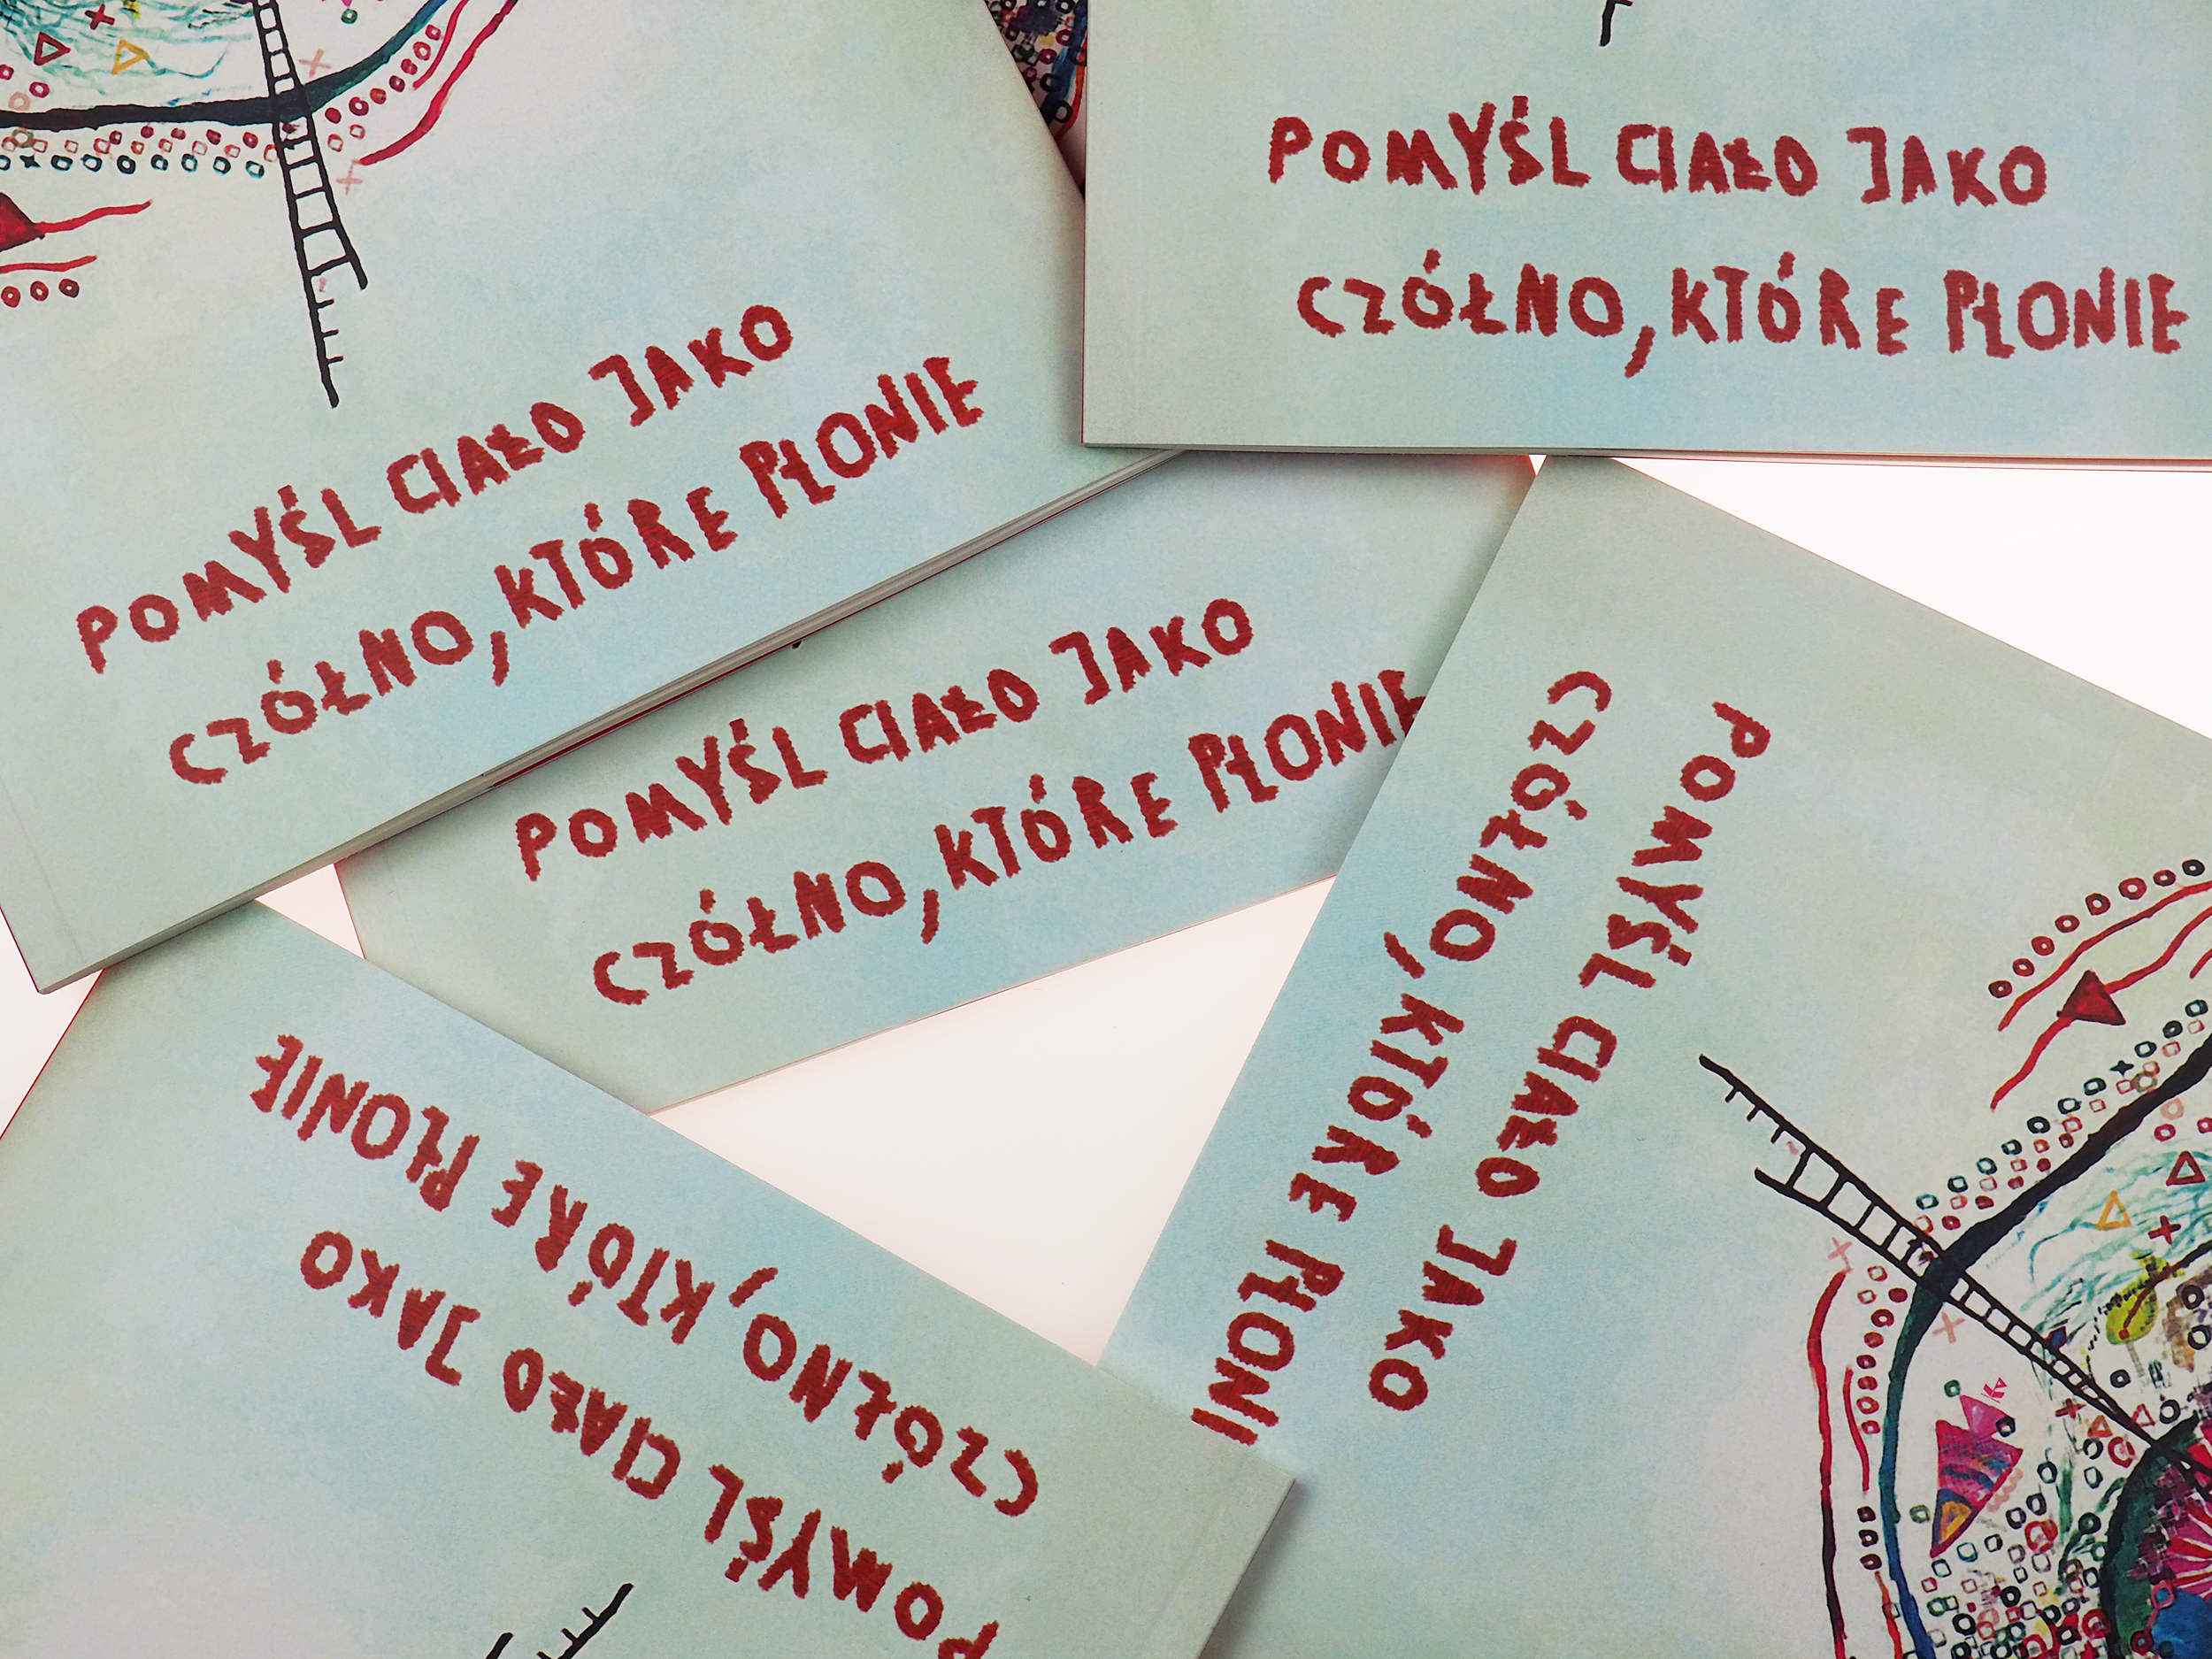 POMYŚL CIAŁO JAKO
CZÓŁNO, KTÓRE PŁONIE
POMYŚL CIAŁO JAKO
CZÓŁNO, KTÓRE PŁONIE
POMYŚL CIAŁO JAKO
CZÓŁNO, KTÓRE PŁONIE
POMYŚL CIAŁO JAKO
CZÓŁNO, KTÓRE PŁONI
POMYŚL CIAŁO JAKO
CZÓŁNO, KTÓRE PŁONIE